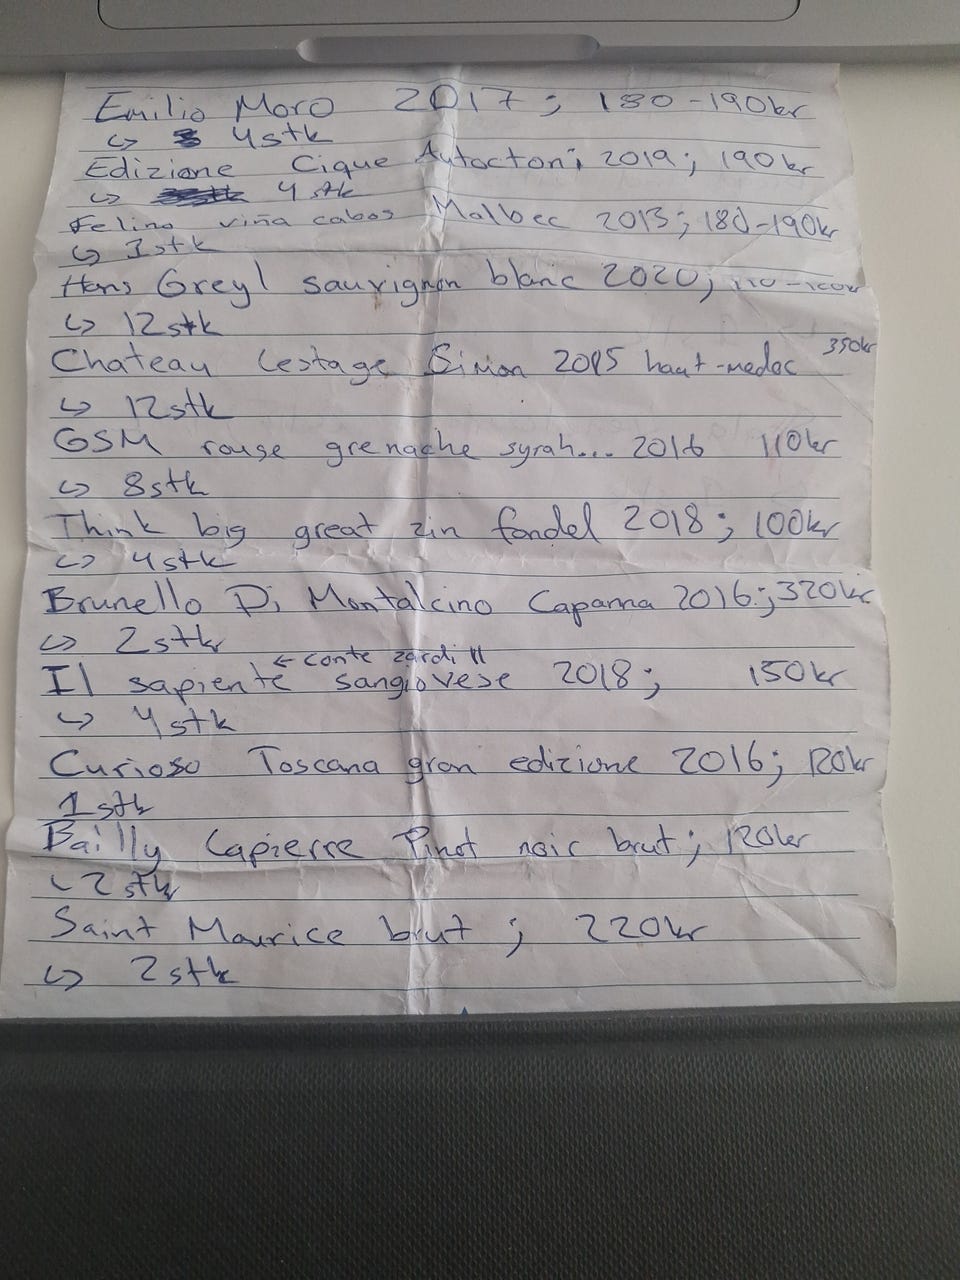 Emilio Moro 2017; 180-190kr
↳ 4stk
Edizione Cique Autoctoni 2019; 190kr
↳ 4 stk
Felino viña cabos Malbec 2013; 180-190kr
↳ 1stk
Hans Greyl sauvignon blanc 2020;
↳ 12stk
Chateau Lestage Simon 2015 haut-medoc 350kr
↳ 12stk
GSM rouge grenache syrah... 2016 110kr
↳ 8stk
Think big great zin fandel 2018; 100kr
↳ 4stk
Brunello Di Montalcino Capanna 2016; 320kr
↳ 2stk
← conte zardi
Il sapiente sangiovese 2018; 150kr
↳ 4stk
Curioso Toscana gran edizione 2016; 120kr
1stk
Bailly Lapierre Pinot noir brut; 120kr
↳ 2stk
Saint Maurice brut; 220kr
↳ 2stk